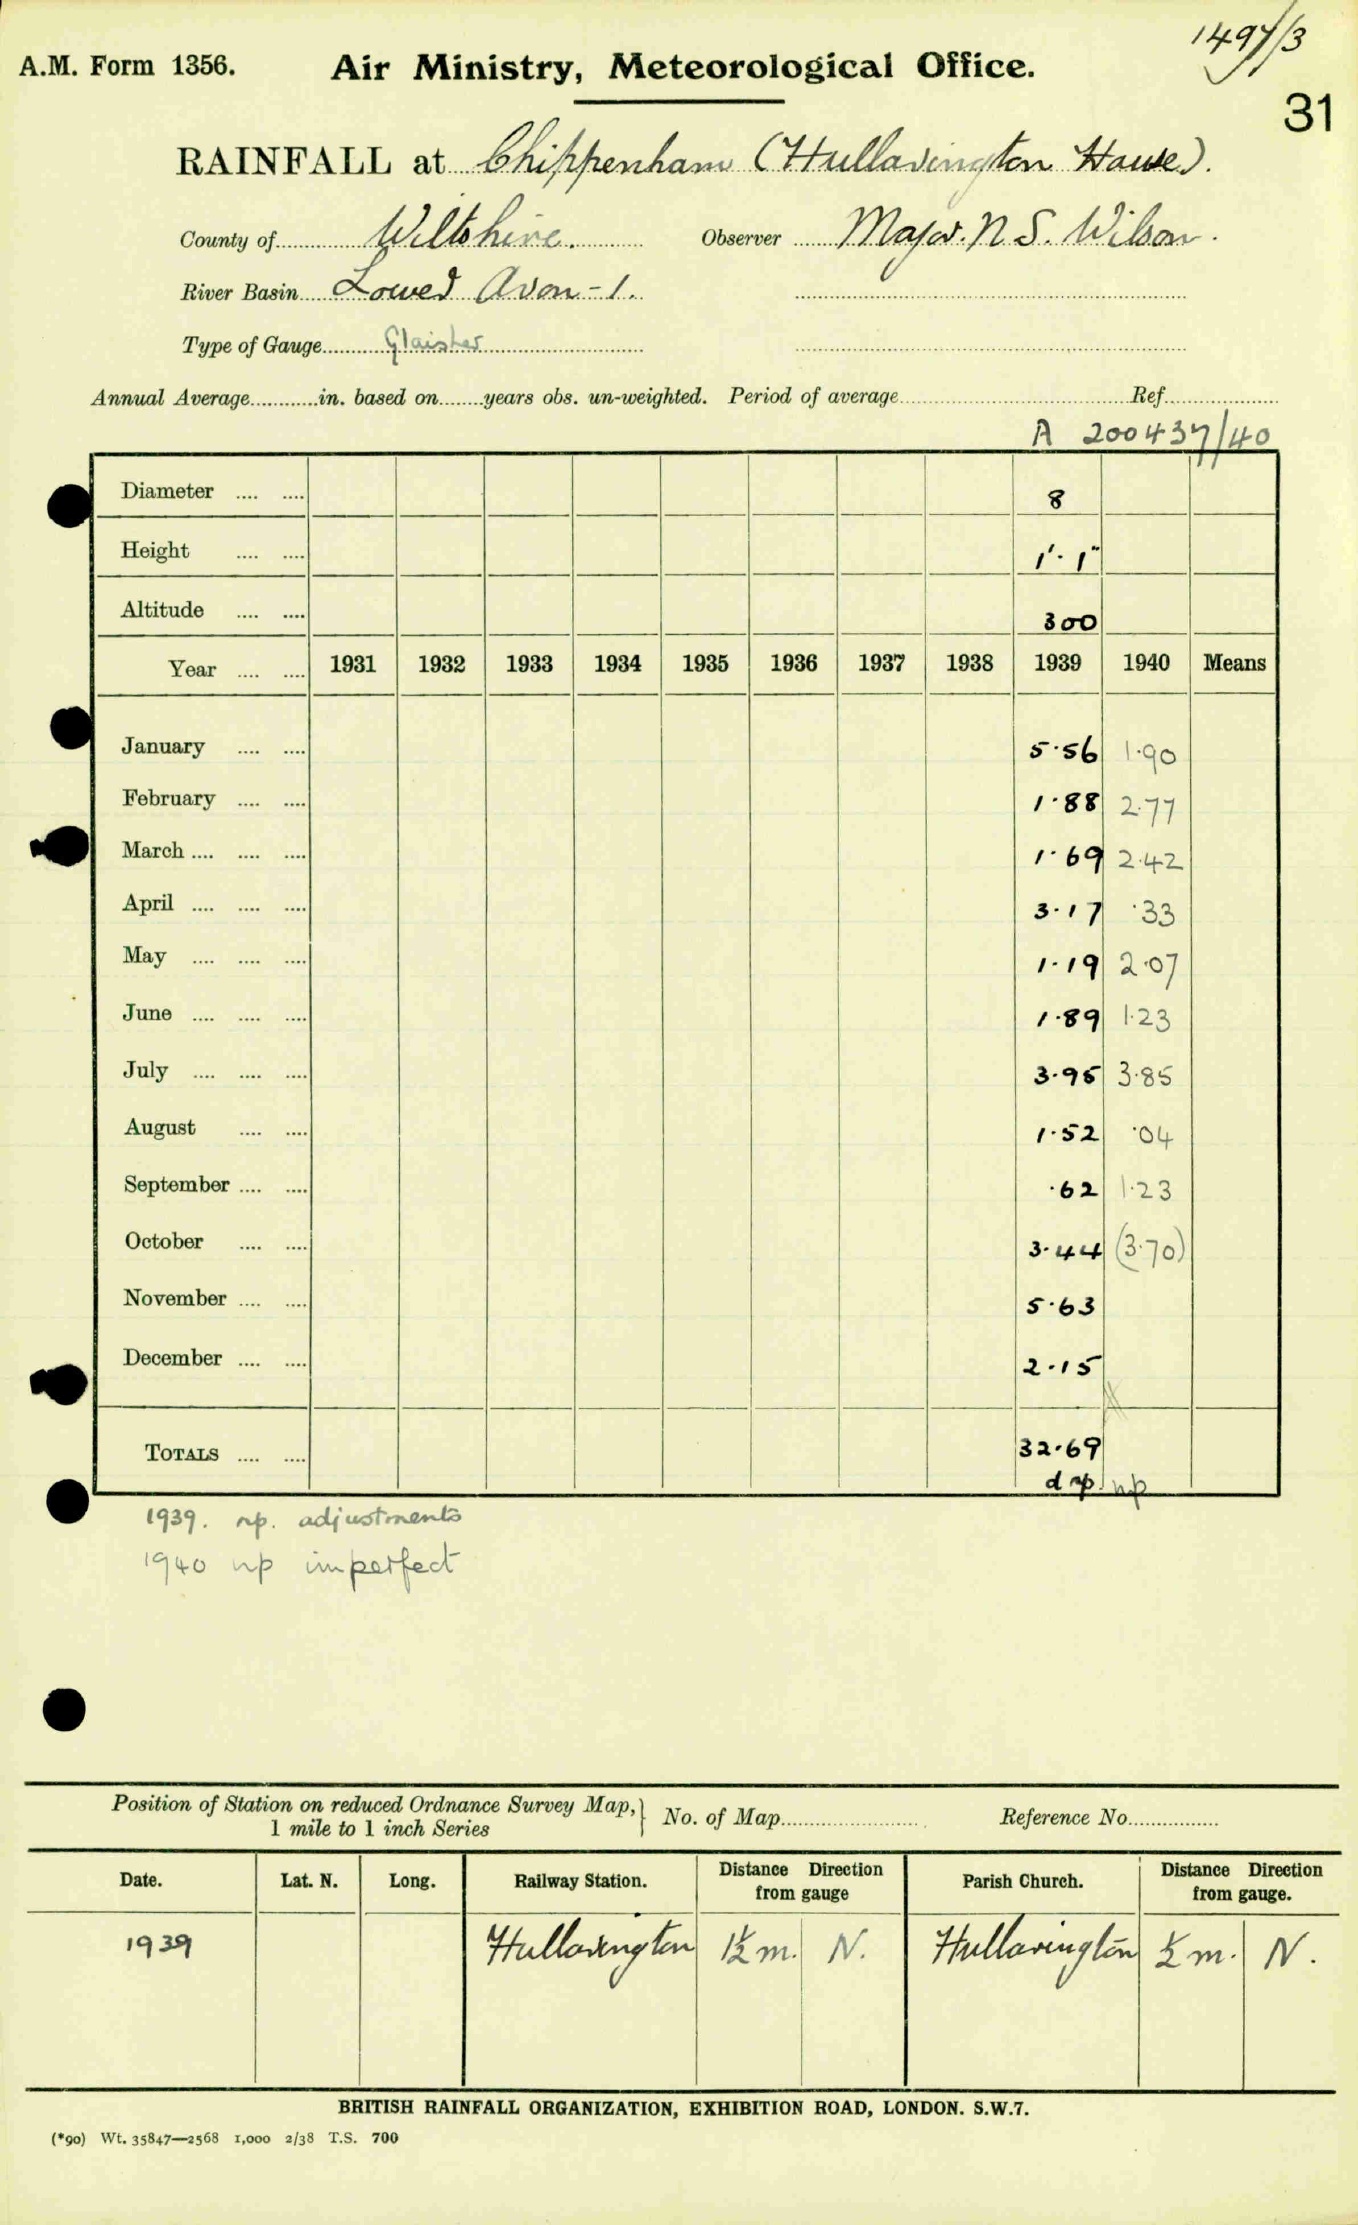 1497/3
A.M. Form 1356. Air Ministry, Meteorological Office.
31
RAINFALL at Chippenham (Hullavington House).
County of Wiltshire. Observer Major. N S. Wilson.
River Basin Lower Avon - 1.
Type of Gauge Glaisher
Annual Average............in. based on........years obs. un-weighted. Period of average........ Ref........
A 200437/40
Diameter .... .... 8
Height .... .... 1'. 1"
Altitude .... .... 300
Year .... .... 1931 1932 1933 1934 1935 1936 1937 1938 1939 1940 Means
January .... .... 5.56 1.90
February .... .... 1.88 2.77
March .... .... .... 1.69 2.42
April .... .... .... 3.17 .33
May .... .... .... 1.19 2.07
June .... .... .... 1.89 1.23
July .... .... .... 3.95 3.85
August .... .... 1.52 .04
September .... .... .62 1.23
October .... .... 3.44 (3.70)
November .... .... 5.63
December .... .... 2.15
TOTALS .... .... 32.69
d np np
1939. np. adjustments
1940 np imperfect
Position of Station on reduced Ordnance Survey Map, } No. of Map........ Reference No........
1 mile to 1 inch Series
Date. Lat. N. Long. Railway Station. Distance Direction from gauge Parish Church. Distance Direction from gauge.
1939 Hullavington 1½ m. N. Hullavington ½ m. N.
BRITISH RAINFALL ORGANIZATION, EXHIBITION ROAD, LONDON. S.W.7.
(*90) Wt. 35847—2568 1,000 2/38 T.S. 700